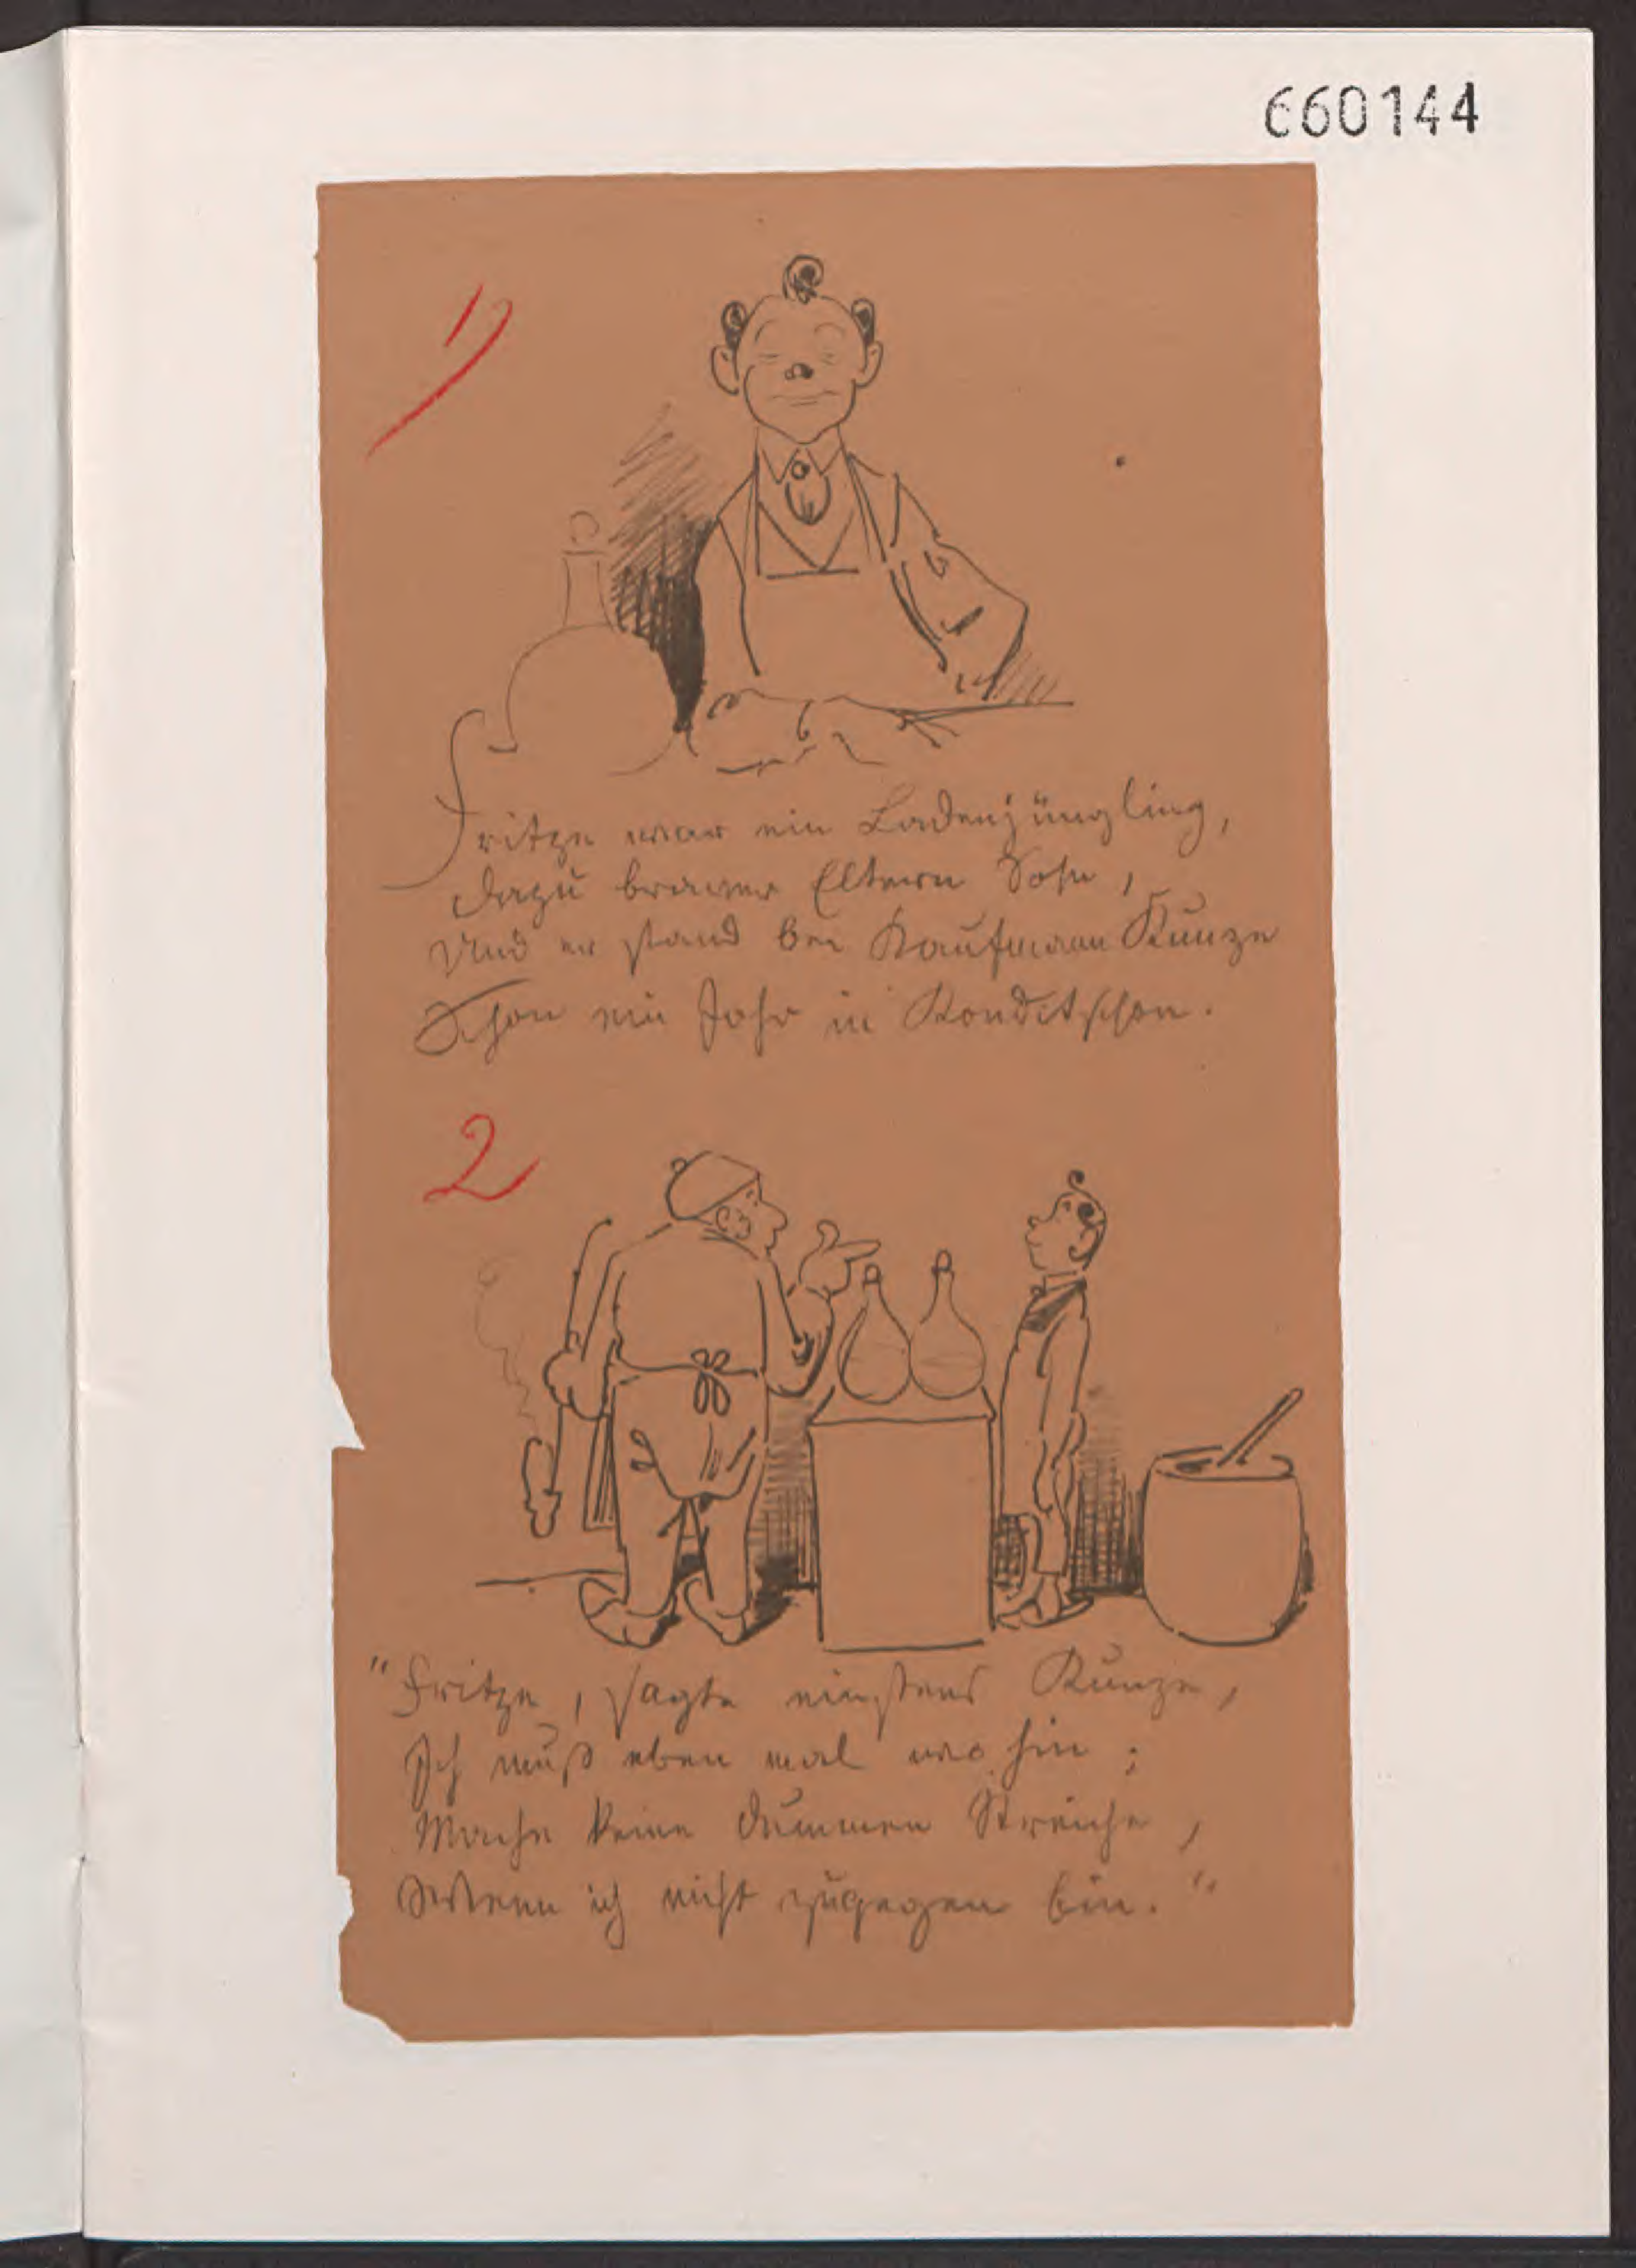 660144
1)
Fritze war ein Ladenjüngling,
Dazu braver Eltern Sohn,
Und er stand bei Kaufmann Kunze
Schon ein Jahr in Konditschon.
2
"Fritze, sagte einstens Kunze,
Ich muß eben mal wo hin;
Mache keine dummen Streiche,
Wenn ich nicht zugegen bin."